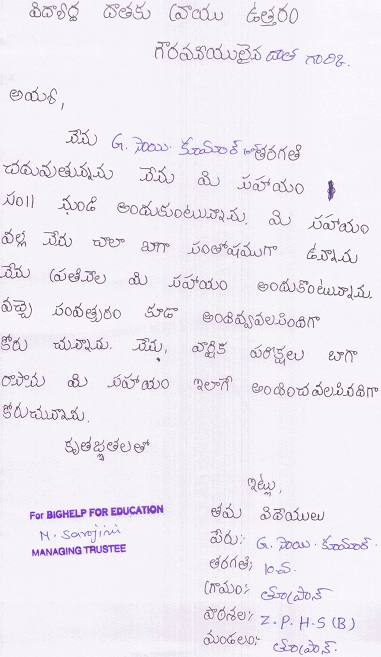 విద్యార్థి దాతకు వ్రాయు ఉత్తరం
గౌరవనీయులైన దాత గారికి.
అయ్యా,
నేను G. సాయి కుమార్ తరగతి
చదువుతున్నాను నేను మి సహాయం
సం॥ నుండి అందుకుంటున్నాను. మి సహాయం
వల్ల నేను చాలా బాగా సంతోషముగా ఉన్నాను
నేను ప్రతినెల మి సహాయం అందుకొంటున్నాను.
వచ్చే సంవత్సరం కూడా అందివ్వవలసిందిగా
కోరు చున్నాను. నేను, వార్షిక పరీక్షలు బాగా
రాసాను మి సహాయం ఇలాగే అందించవలసినదిగా
కోరుచున్నాను.
కృతజ్ఞతలతో
ఇట్లు,
తమ విదేయులు
పేరు:- G. సాయి. కుమార్.
తరగతి: 10వ.
గ్రామం:- తూప్రాన్
పాఠశాల:- Z.P.H.S (B)
మండలం:- తూప్రాన్.
For BIGHELP FOR EDUCATION
M. Sarojini
MANAGING TRUSTEE